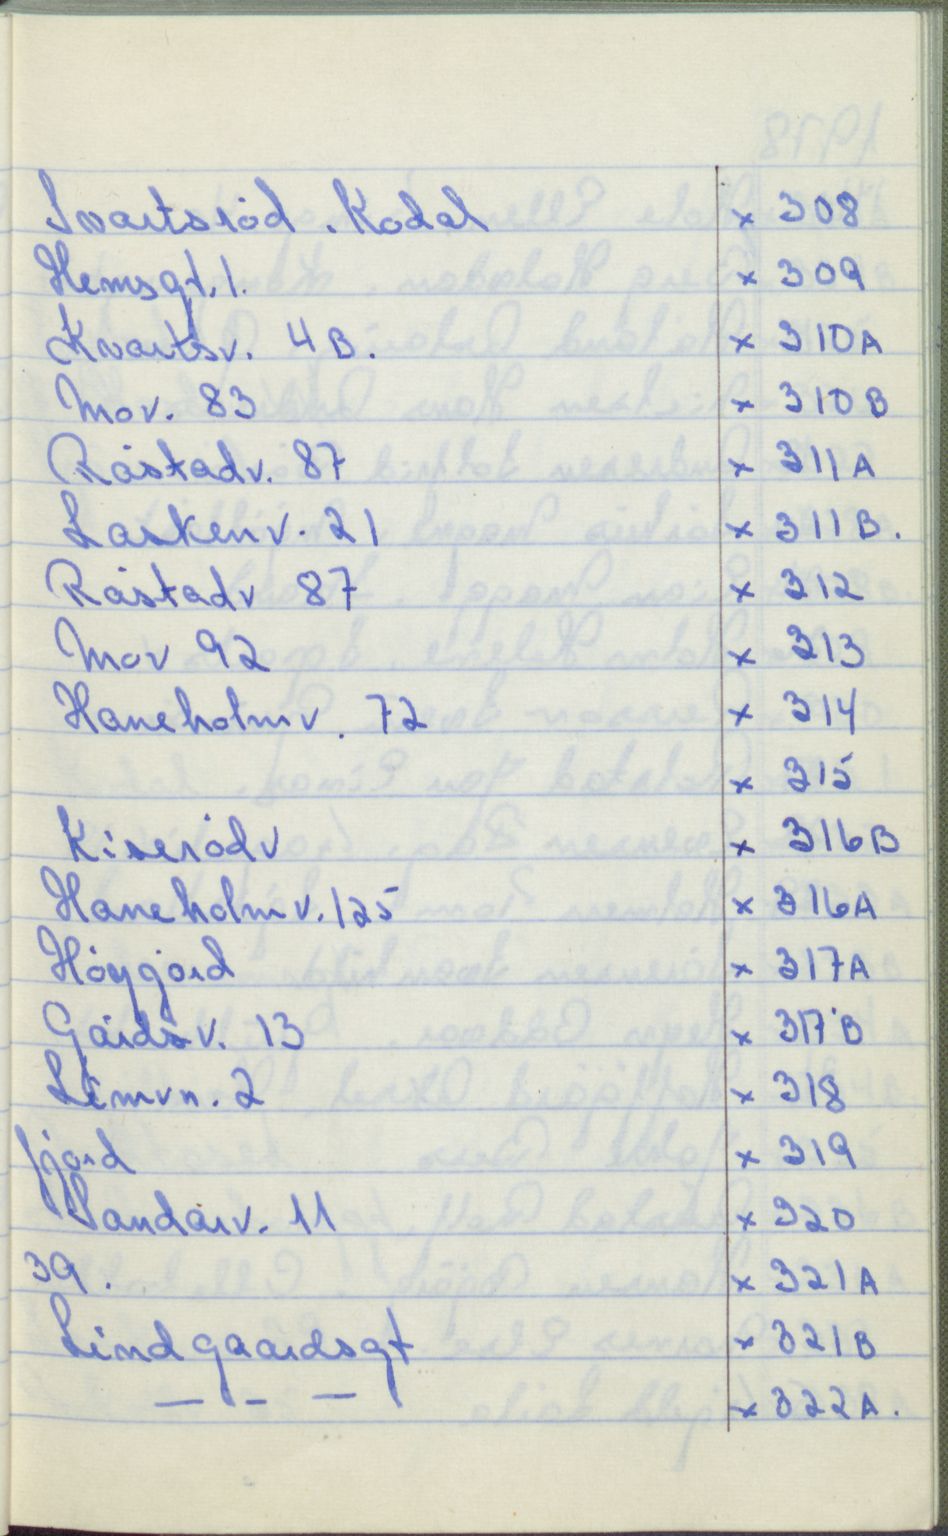 Svartsröd. Kodal x 308
Hemsgt. 1. x 309
Kvartsv. 4B. x 310A
Mov. 83 x 310B
Råstadv. 87 x 311A
Laskenv. 21 x 311B.
Råstadv 87 x 312
Mov 92 x 313
Haneholmv. 72 x 314
x 315
Kiserödv x 316B
Haneholmv. 125 x 316A
Höygjord x 317A
Gårdsv. 13 x 317B
Limvn. 2 x 318
fjord x 319
Sandarv. 11 x 320
39. x 321A
Lindgaardsgt x 321B
— - — x 322A.